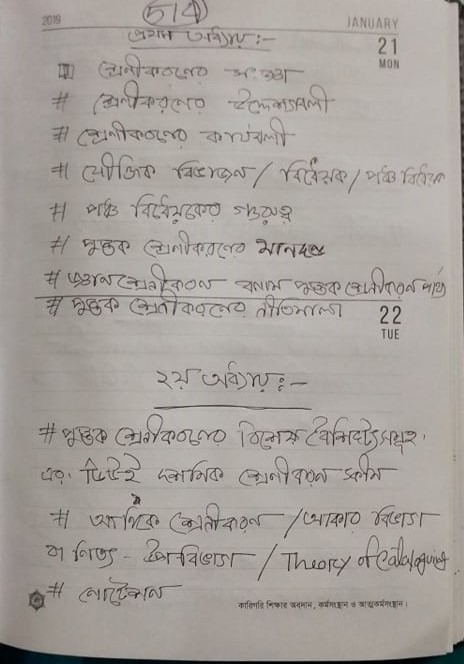 2019
514
JANUARY
21
MON
প্রথম অধ্যায়:-
শ্রেনীকরণের সংজ্ঞা
# শ্রেনীকরণের উদ্দেশ্যাবলী
# শ্রেনীকরণের কার্যাবলী
# যৌক্তিক বিভাজন / বিধেয়ক / পঞ্চ বিধেয়ক
# পঞ্চ বিধেয়কের গুরুত্ব
# পুস্তক শ্রেনীকরণের মানদন্ড
# জ্ঞান শ্রেনীকরন বনাম পুস্তক শ্রেনীকরন পার্থ
# পুস্তক শ্রেনীকরণের নীতিমালা
22
TUE
২য় অধ্যায়:-
# পুস্তক শ্রেনীকরণের বিশেষ বৈশিষ্ট্য সমূহ.
এর. ডিউই দশমিক শ্রেনীকরন স্কীম
# আংশিক শ্রেনীকরন / আকার বিভাগ
বা নিত্য - উপবিভাগ / Theory of Cataloguing
# নোটেশন
কারিগরি শিক্ষার অবদান, কর্মসংস্থান ও আত্মকর্মসংস্থান।